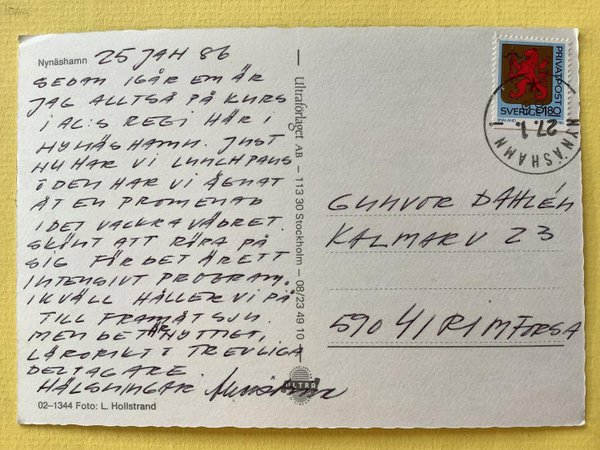 Nynäshamn
25 JAN 86
SEDAN IGÅR EM ÄR
JAG ALLTSÅ PÅ KURS
I AC:S REGI HÄR I
NYNÄSHAMN. JUST
NU HAR VI LUNCHPAUS
O DEN HAR VI ÄGNAT
ÅT EN PROMENAD
I DET VACKRA VÄDRET.
SKÖNT ATT RÖRA PÅ
SIG FÖR DET ÄR ETT
INTENSIVT PROGRAM.
IKVÄLL HÅLLER VI PÅ
TILL FRAMÅT SJU.
MEN DET ÄR NYTTIGT,
LÄRORIKT O TREVLIGA
DELTAGARE
HÄLSNINGAR
02-1344 Foto: L. Hollstrand
Ultraförlaget AB - 113 30 Stockholm - 08/23 49 10
ULTRA
PRIVATPOST
SVERIGE 180
SMÅLAND
NYNÄSHAMN
27.1
GUNVOR DAHLÉN
KALMARV 23
590 41 RIMFORSA